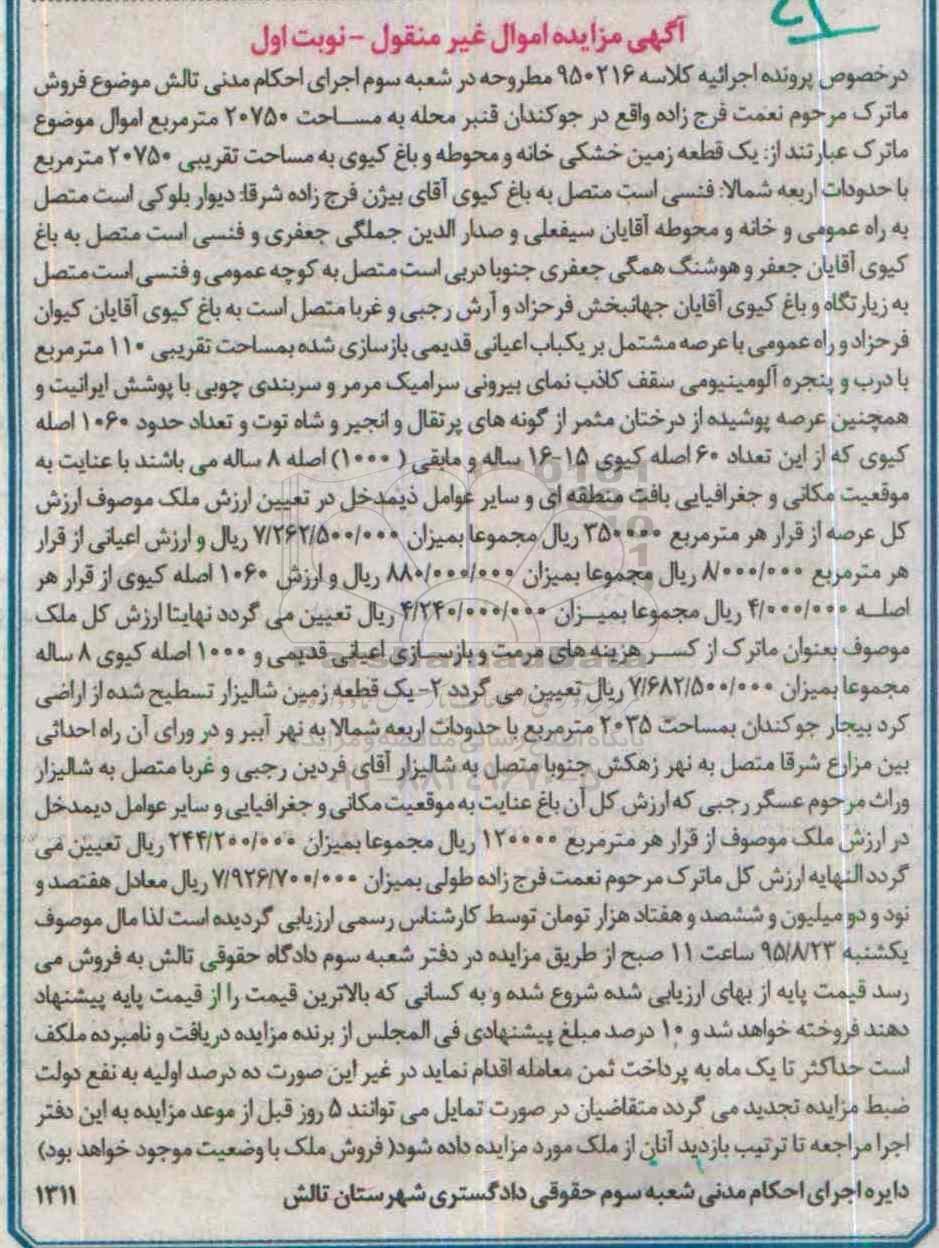 آگهی مزایده اموال غیر منقول - نوبت اول
درخصوص پرونده اجرائیه کلاسه ۹۵۰۲۱۶ مطروحه در شعبه سوم اجرای احکام مدنی تالش موضوع فروش
ماترک مرحوم نعمت فرج زاده واقع در جوکندان قنبر محله به مساحت ۲۰۷۵۰ مترمربع اموال موضوع
ماترک عبارتند از: یک قطعه زمین خشکی خانه و محوطه و باغ کیوی به مساحت تقریبی ۲۰۷۵۰ مترمربع
با حدودات اربعه شمالا: فنسی است متصل به باغ کیوی آقای بیژن فرج زاده شرقا: دیوار بلوکی است متصل
به راه عمومی و خانه و محوطه آقایان سیفعلی و صدار الدین جملگی جعفری و فنسی است متصل به باغ
کیوی آقایان جعفر و هوشنگ همگی جعفری جنوبا دربی است متصل به کوچه عمومی و فنسی است متصل
به زیارتگاه و باغ کیوی آقایان جهانبخش فرحزاد و آرش رجبی و غربا متصل است به باغ کیوی آقایان کیوان
فرحزاد و راه عمومی با عرصه مشتمل بر یکباب اعیانی قدیمی بازسازی شده بمساحت تقریبی ۱۱۰ مترمربع
با درب و پنجره آلومینیومی سقف کاذب نمای بیرونی سرامیک مرمر و سربندی چوبی با پوشش ایرانیت و
همچنین عرصه پوشیده از درختان مثمر از گونه های پرتقال و انجیر و شاه توت و تعداد حدود ۱۰۶۰ اصله
کیوی که از این تعداد ۶۰ اصله کیوی ۱۵-۱۶ ساله و مابقی ( ۱۰۰۰) اصله ۸ ساله می باشند با عنایت به
موقعیت مکانی و جغرافیایی بافت منطقه ای و سایر عوامل ذیمدخل در تعیین ارزش ملک موصوف ارزش
کل عرصه از قرار هر مترمربع ۳۵۰۰۰۰ ریال مجموعا بمیزان ۷/۲۶۲/۵۰۰/۰۰۰ ریال و ارزش اعیانی از قرار
هر مترمربع ۸/۰۰۰/۰۰۰ ریال مجموعا بمیزان ۸۸۰/۰۰۰/۰۰۰ ریال و ارزش ۱۰۶۰ اصله کیوی از قرار هر
اصلـه ۴/۰۰۰/۰۰۰ ریال مجموعا بمیـزان ۴/۲۴۰/۰۰۰/۰۰۰ ریال تعیین می گردد نهایتا ارزش کل ملک
موصوف بعنوان ماترک از کسـر هزینه های مرمت و بازسـازی اعیانی قدیمی و ۱۰۰۰ اصله کیوی ۸ ساله
مجموعا بمیزان ۷/۶۸۲/۵۰۰/۰۰۰ ریال تعیین می گردد ۲- یک قطعه زمین شالیزار تسطیح شده از اراضی
کرد بیجار جوکندان بمساحت ۲۰۳۵ مترمربع با حدودات اربعه شمالا به نهر آببر و در ورای آن راه احداثی
بین مزارع شرقا متصل به نهر زهکش جنوبا متصل به شالیزار آقای فردین رجبی و غربا متصل به شالیزار
وراث مرحوم عسگر رجبی که ارزش کل آن باغ عنایت به موقعیت مکانی و جغرافیایی و سایر عوامل دیمدخل
در ارزش ملک موصوف از قرار هر مترمربع ۱۲۰۰۰۰ ریال مجموعا بمیزان ۲۴۴/۲۰۰/۰۰۰ ریال تعیین می
گردد النهایه ارزش کل ماترک مرحوم نعمت فرج زاده طولی بمیزان ۷/۹۲۶/۷۰۰/۰۰۰ ریال معادل هفتصد و
نود و دو میلیون و ششصد و هفتاد هزار تومان توسط کارشناس رسمی ارزیابی گردیده است لذا مال موصوف
یکشنبه ۹۵/۸/۲۳ ساعت ۱۱ صبح از طریق مزایده در دفتر شعبه سوم دادگاه حقوقی تالش به فروش می
رسد قیمت پایه از بهای ارزیابی شده شروع شده و به کسانی که بالاترین قیمت را از قیمت پایه پیشنهاد
دهند فروخته خواهد شد و ۱۰ درصد مبلغ پیشنهادی فی المجلس از برنده مزایده دریافت و نامبرده ملکف
است حداکثر تا یک ماه به پرداخت ثمن معامله اقدام نماید در غیر این صورت ده درصد اولیه به نفع دولت
ضبط مزایده تجدید می گردد متقاضیان در صورت تمایل می توانند ۵ روز قبل از موعد مزایده به این دفتر
اجرا مراجعه تا ترتیب بازدید آنان از ملک مورد مزایده داده شود( فروش ملک با وضعیت موجود خواهد بود)
دایره اجرای احکام مدنی شعبه سوم حقوقی دادگستری شهرستان تالش ۱۳۱۱